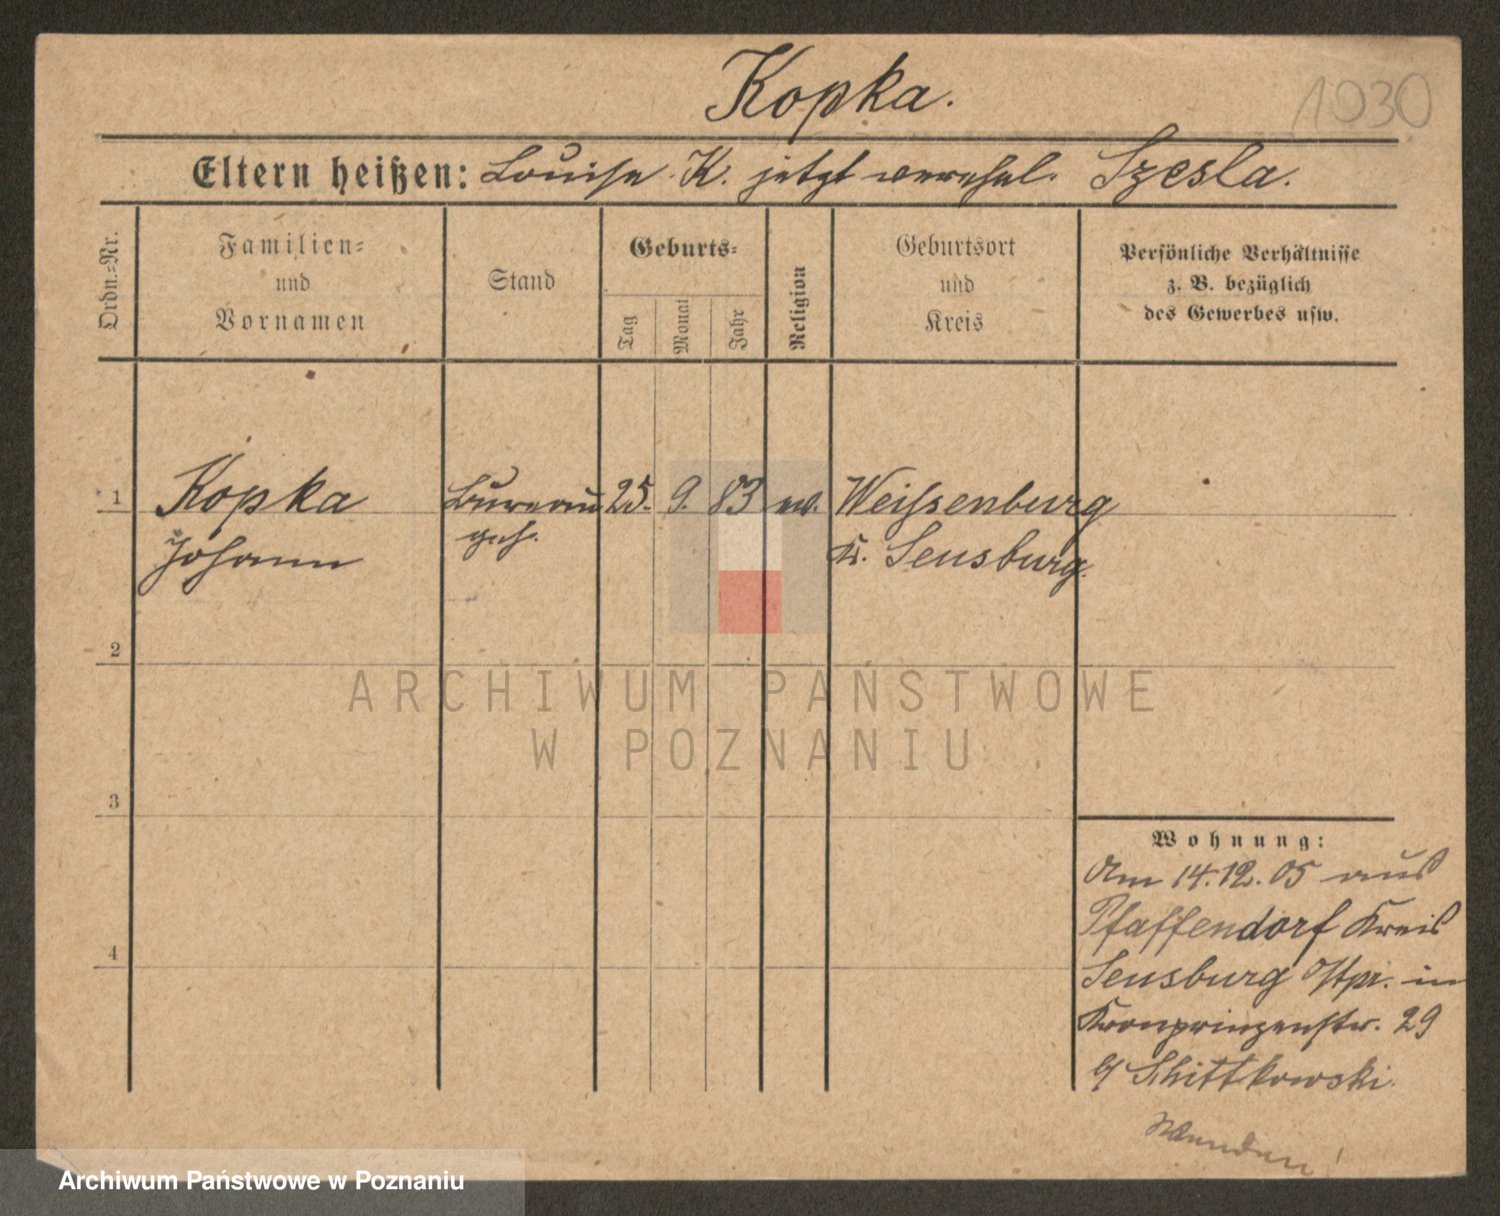 Kopka.
1030
Eltern heißen: Louise K. jetzt verehel. Szesla.
Ordn.=Nr.
Familien=
und
Vornamen
Stand
Geburts=
Tag
Monat
Jahr
Religion
Geburtsort
und
Kreis
Persönliche Verhältnisse
z. B. bezüglich
des Gewerbes usw.
1 Kopka Bureau 25. 9. 83 ev. Weissenburg
Johann geh. Kr. Sensburg.
2
3
4
Wohnung:
Am 14.12.05 aus
Pfaffendorf Kreis
Sensburg Ostpr. in
Kronprinzenstr. 29
b/ Schittkowski.
Wenden!
ARCHIWUM PAŃSTWOWE
W POZNANIU
Archiwum Państwowe w Poznaniu